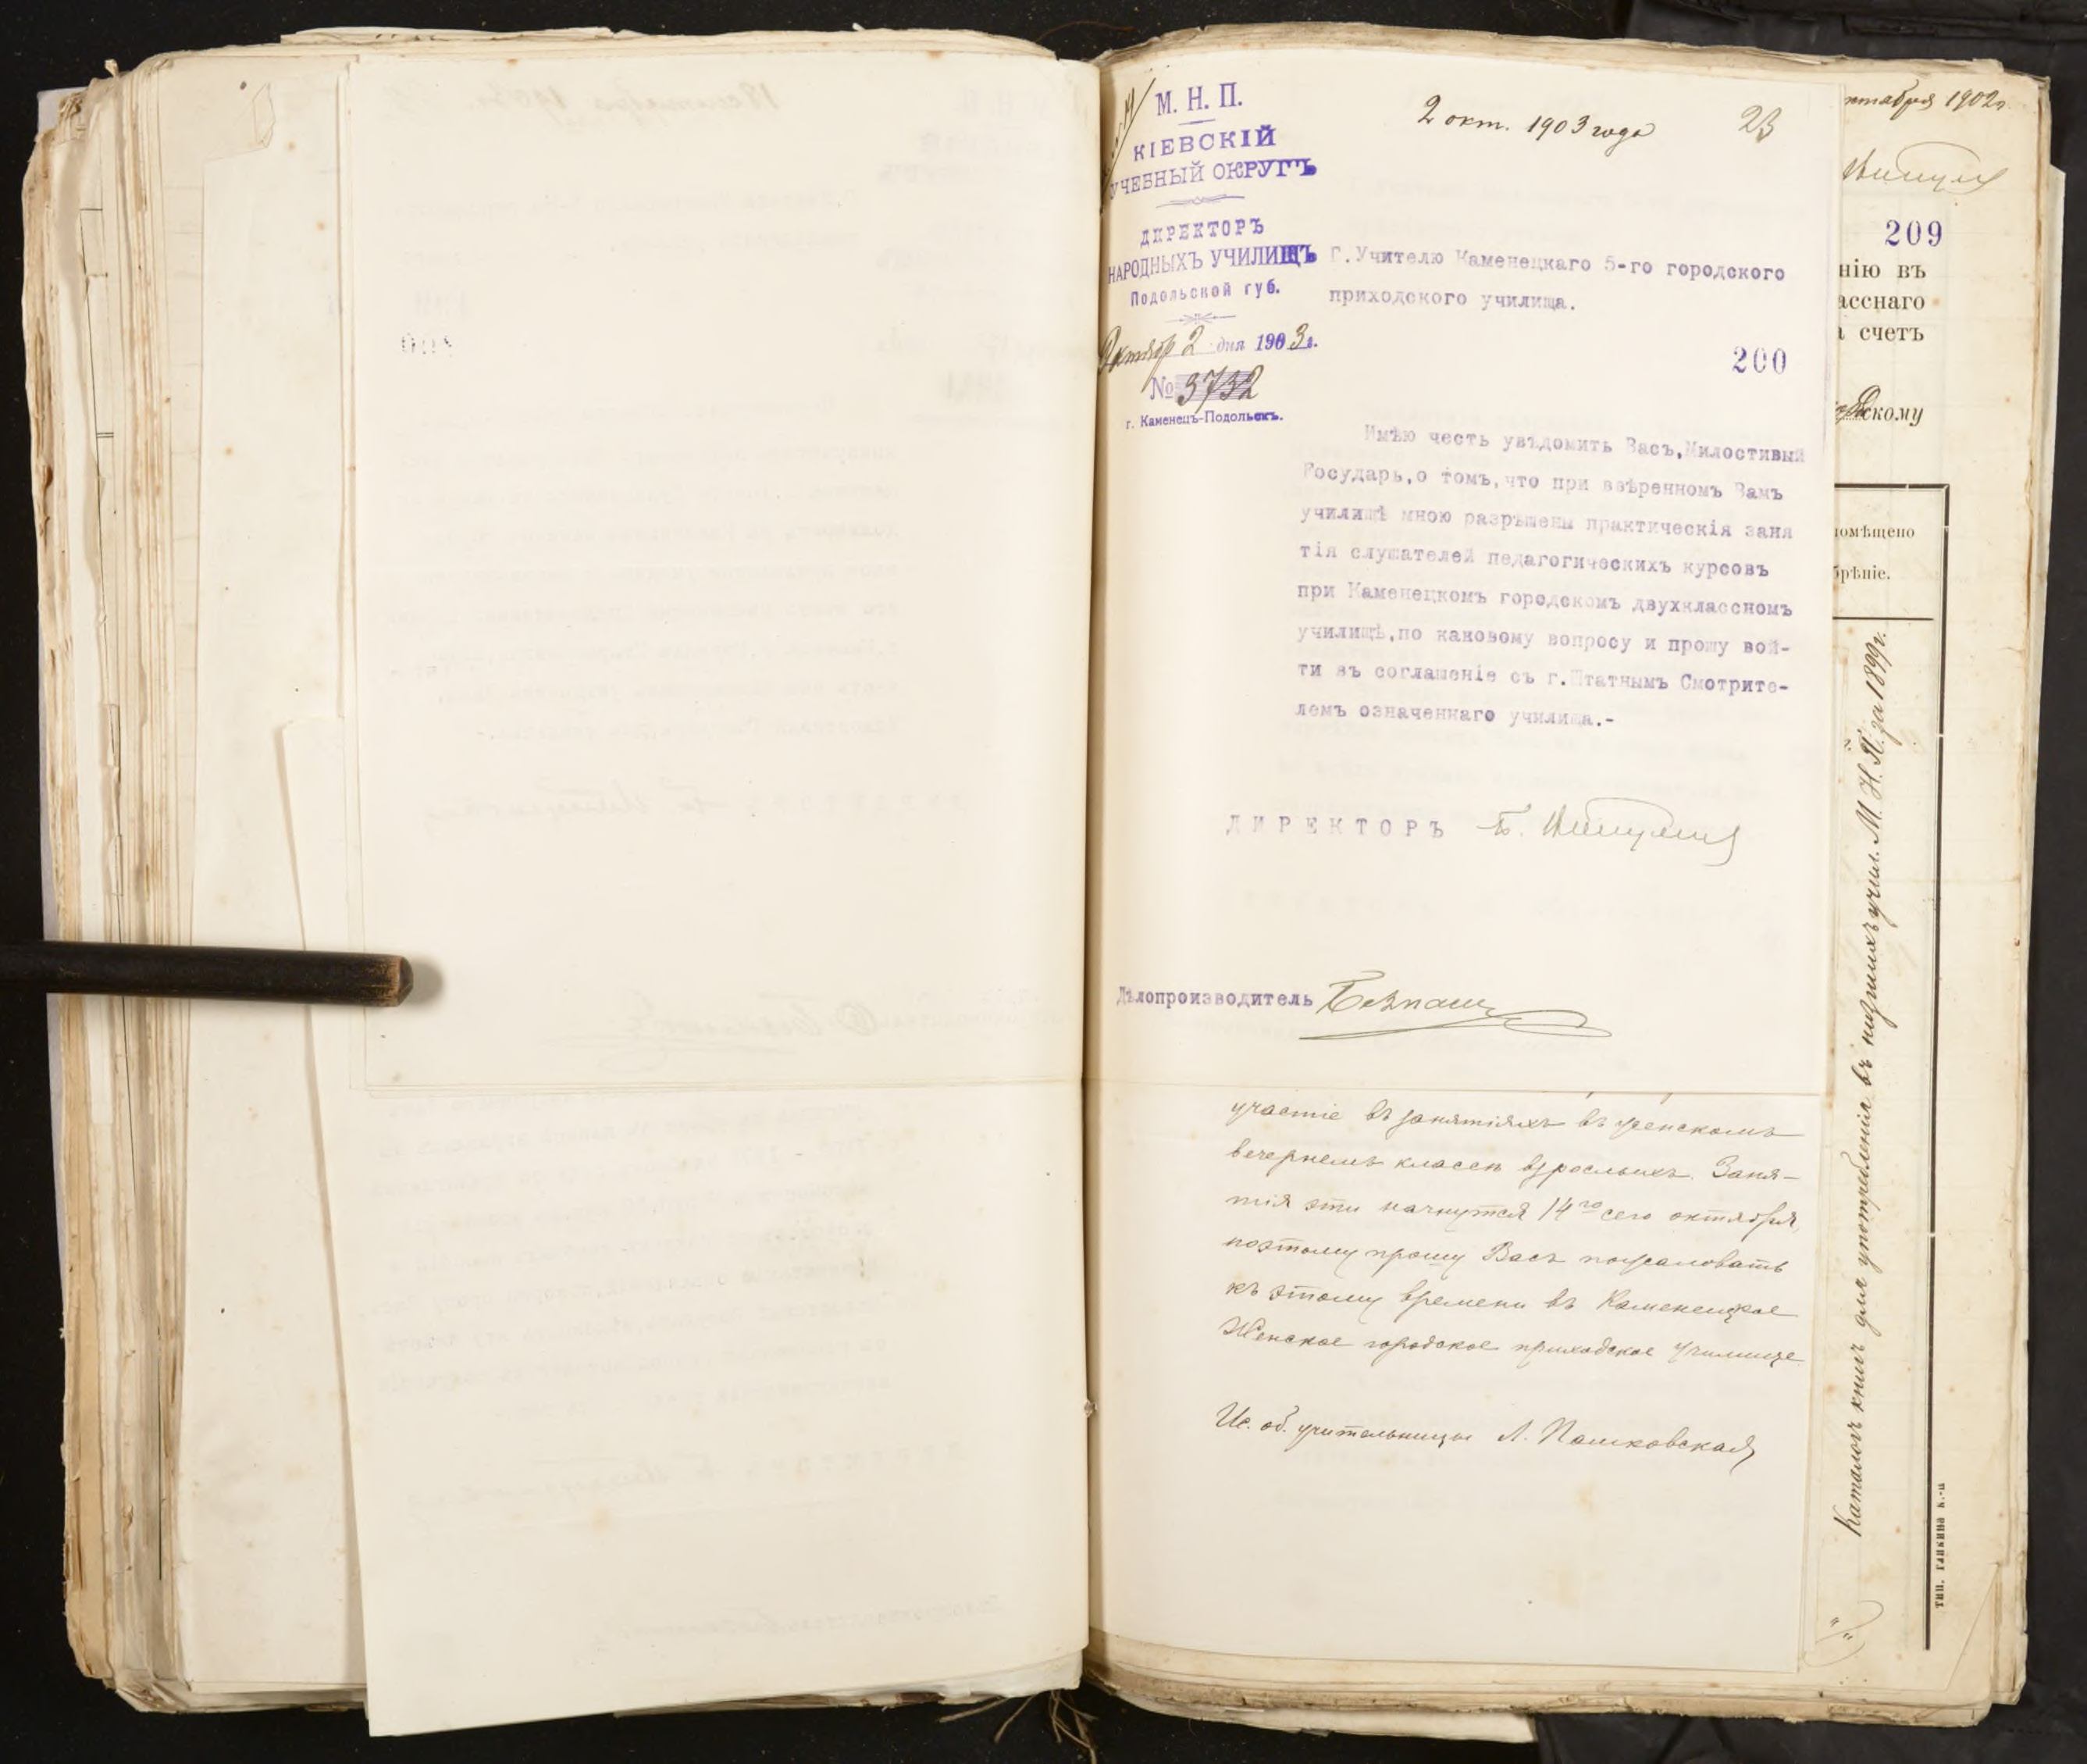 М. Н. П.
КІЕВСКІЙ
УЧЕБНЫЙ ОКРУГЪ
ДИРЕКТОРЪ
НАРОДНЫХЪ УЧИЛИЩЪ
Подольской губ.
Октября 2 дня 1903 г.
№ 3732
г. Каменецъ-Подольскъ.
2 окт. 1903 года
23
Г.Учителю Каменецкаго 5-го городского
приходского училища.
200
Имѣю честь увѣдомить Васъ,Милостивый
Государь,о томъ,что при ввѣренномъ Вамъ
училищѣ мною разрѣшены практическія заня
тія слушателей педагогическихъ курсовъ
при Каменецкомъ городскомъ двухклассномъ
училищѣ,по каковому вопросу и прошу вой-
ти въ соглашеніе съ г.Штатнымъ Смотрите-
лемъ означеннаго училища.-
ДИРЕКТОРЪ
Дѣлопроизводитель
участіе въ занятіяхъ въ женскомъ
вечернемъ классѣ взрослыхъ. Заня-
тія эти начнутся 14го сего октября,
поэтому прошу Васъ пожаловать
къ этому времени въ Каменецкое
Женское городское приходское училище
Ис. об. учительницы Л. Пашковская
нтября 1902 г.
209
нію въ
асснаго
счетъ
скому
помѣщено
брѣніе.
Каталогъ книгъ для употребленія въ низшихъ учил. М. Н. П. за 1899 г.